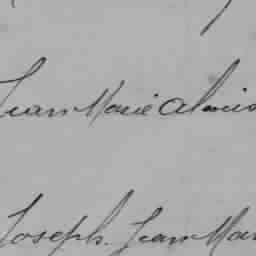 Jean Marie Alouis
Joseph. Jean Mar